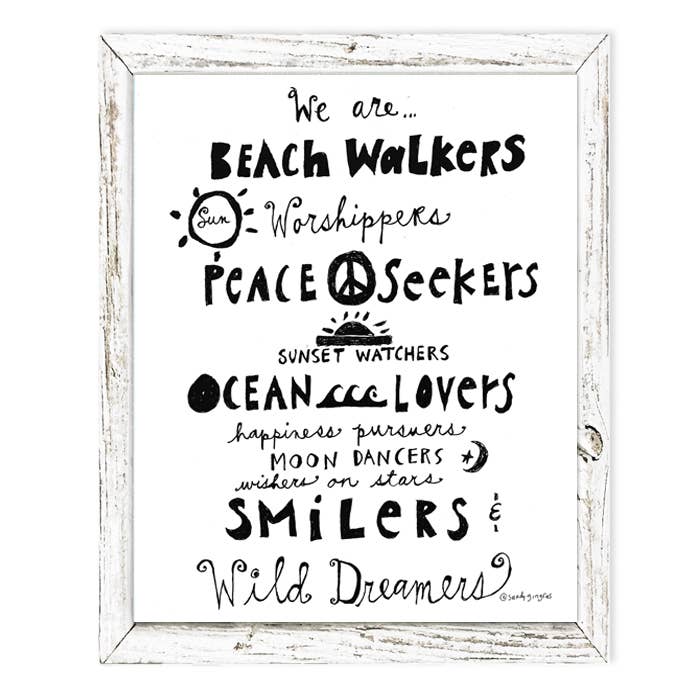 We are...
BEACH WALKERS
Sun Worshippers
PEACE SEEKERS
SUNSET WATCHERS
OCEAN LOVERS
happiness pursuers
MOON DANCERS
wishers on stars
SMILERS &
Wild Dreamers
@sandygingras